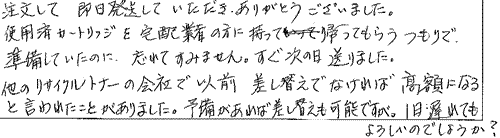 注文して 即日発送して いただき、ありがとう ございました。
使用済カートリッジを 宅配業者の方に 持って帰ってもらう つもりで、
準備していたのに、忘れてすみません。すぐ次の日 送りました。
他のリサイクルトナーの会社で 以前 差し替えでなければ 高額になる
と言われたことがありました。予備があれば差し替えも可能ですが、1日遅れても
よろしいのでしょうか?